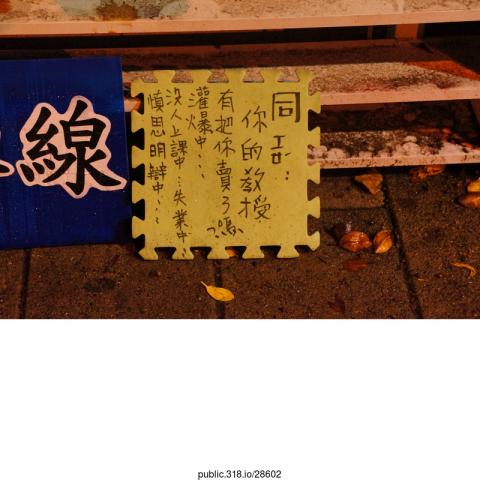 線
同
你的教授
有把你賣了嗎?
灌爆中...
沒人上課中...失業中...
慎思明辯中...
public.318.io/28602